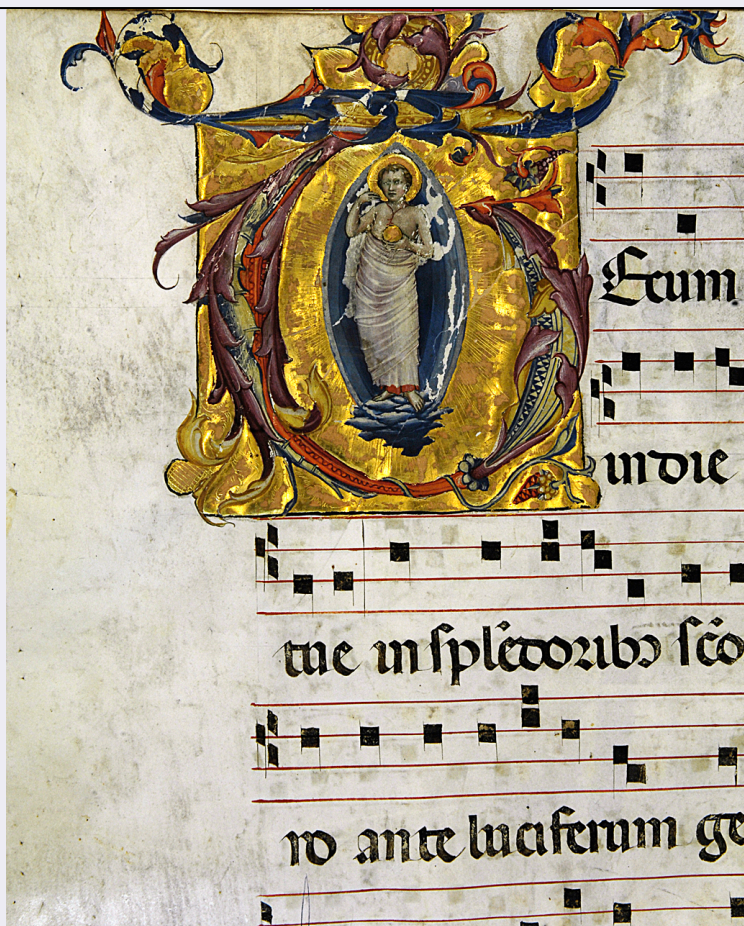 TEcum
in die
tue in splẽdoribꝰ sc̃o
ro ante luciferum ge